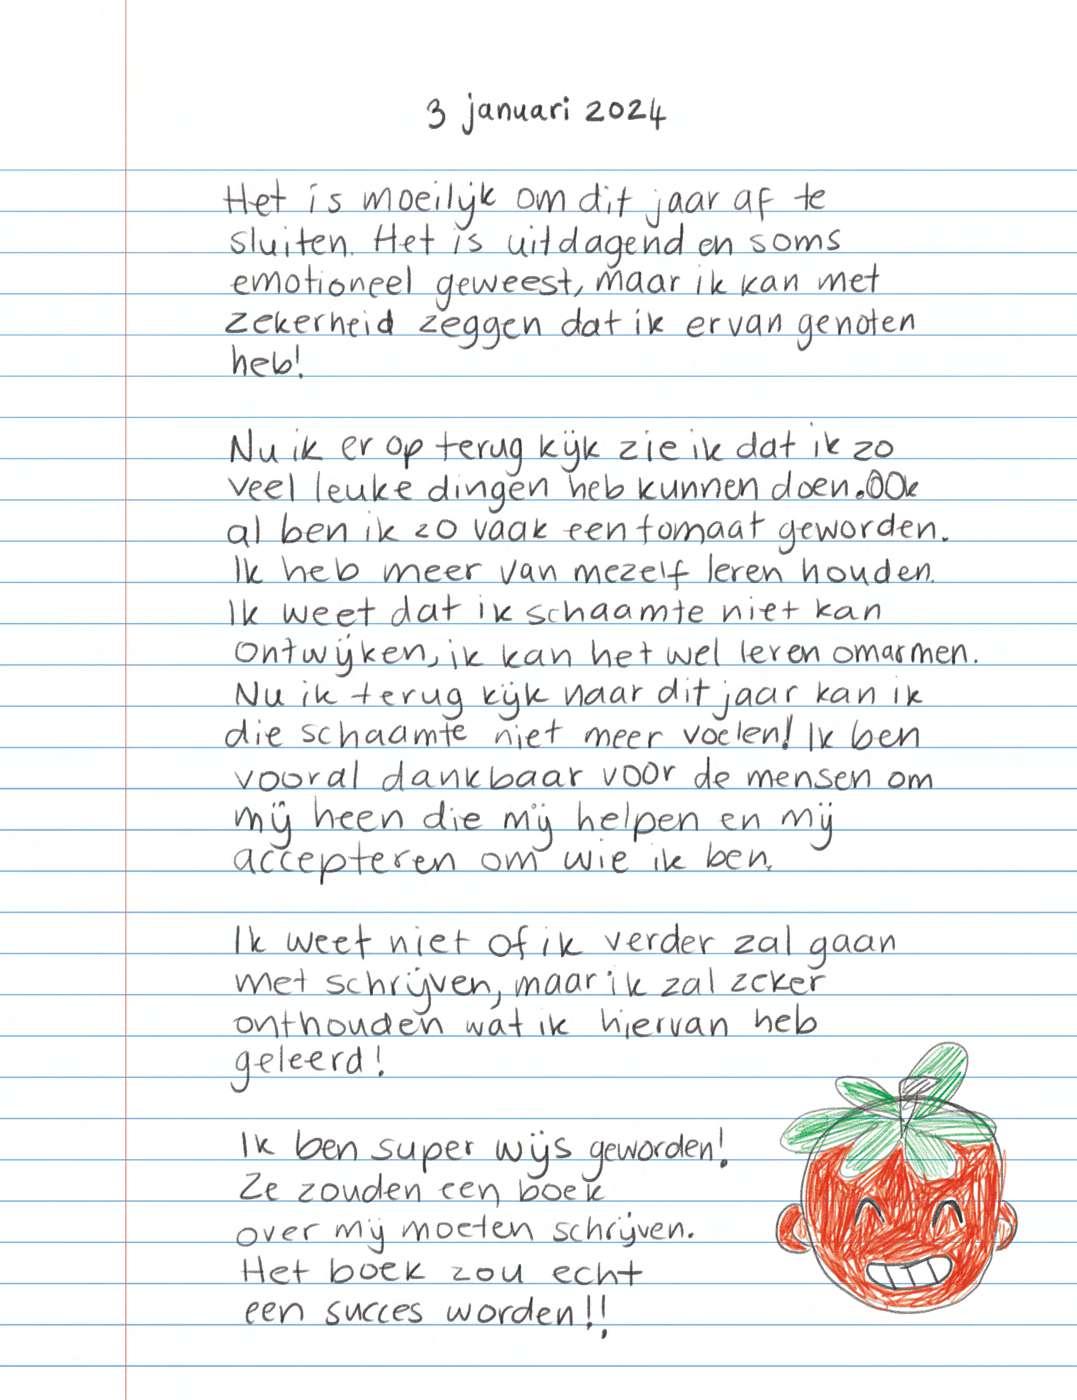 3 januari 2024
Het is moeilijk om dit jaar af te
sluiten. Het is uitdagend en soms
emotioneel geweest, maar ik kan met
zekerheid zeggen dat ik ervan genoten
heb!
Nu ik er op terug kijk zie ik dat ik zo
veel leuke dingen heb kunnen doen. Ook
al ben ik zo vaak een tomaat geworden.
Ik heb meer van mezelf leren houden.
Ik weet dat ik schaamte niet kan
ontwijken, ik kan het wel leren omarmen.
Nu ik terug kijk naar dit jaar kan ik
die schaamte niet meer voelen! Ik ben
vooral dankbaar voor de mensen om
mij heen die mij helpen en mij
accepteren om wie ik ben.
Ik weet niet of ik verder zal gaan
met schrijven, maar ik zal zeker
onthouden wat ik hiervan heb
geleerd!
Ik ben super wijs geworden!
Ze zouden een boek
over mij moeten schrijven.
Het boek zou echt
een succes worden!!